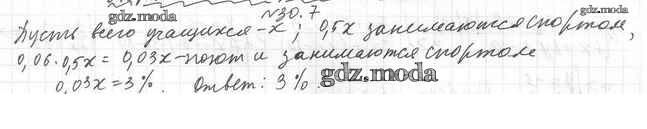 gdz.moda №30.7 gdz.moda
Пусть всего учащихся - x ; 0,5x занимаются спортом,
0,06·0,5x = 0,03x - поют и занимаются спортом
0,03x = 3%. Ответ: 3%. gdz.moda